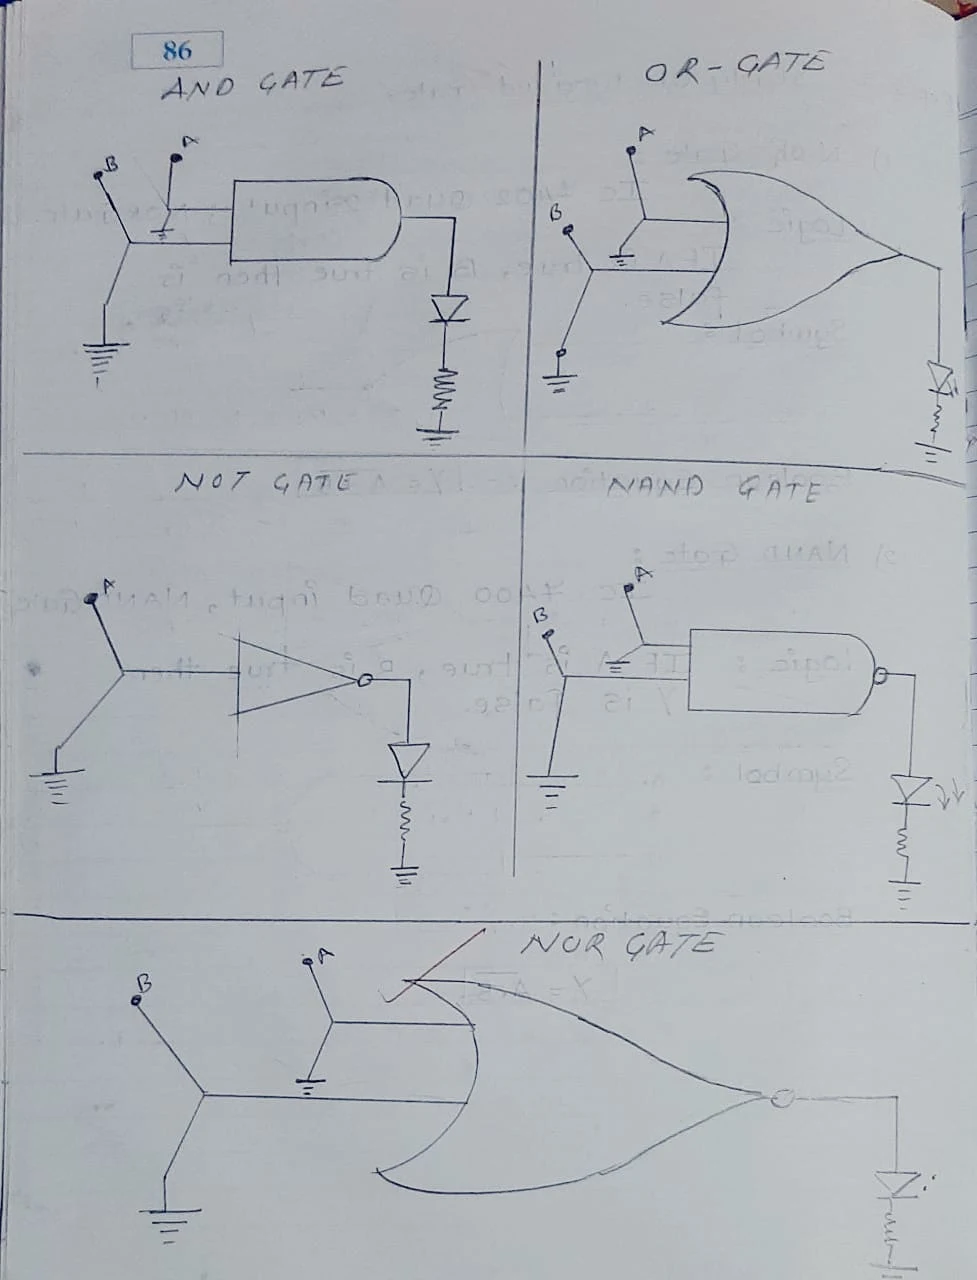 86
AND GATE
OR-GATE
A
B
A
B
NOT GATE
NAND GATE
A
A
B
NOR GATE
A
B